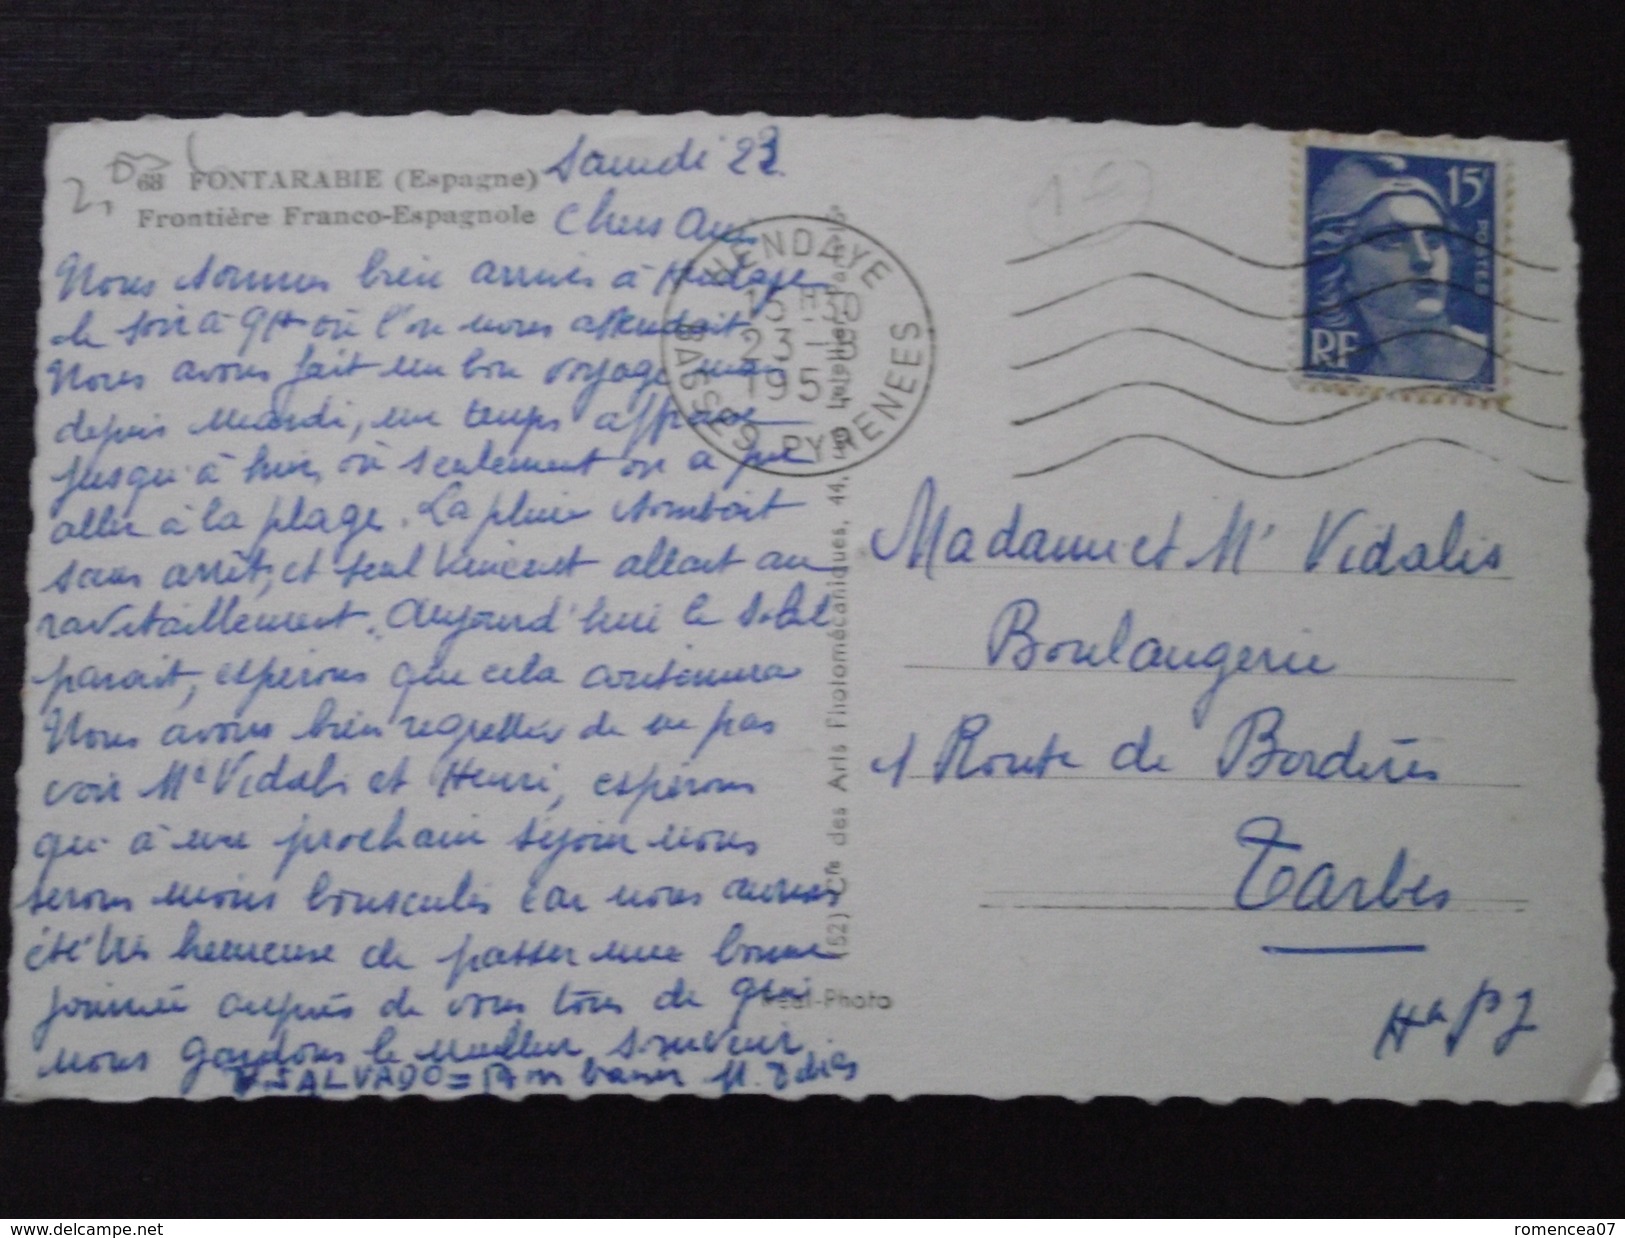 68 FONTARABIE (Espagne)
Frontière Franco-Espagnole
Samedi 23
Chers Amis
Nous sommes bien arrivés à Hendaye
le soir à 9H où l'on nous attendait
Nous avons fait un bon voyage mais
depuis mardi, un temps affreux
jusqu'à hier, où seulement on a pu
aller à la plage. La pluie tombait
sans arrêt, et seul Vincent allait au
ravitaillement. Aujourd'hui le soleil
parait, espérons que cela continuera
Nous avons bien regretter de ne pas
voir Mr Vidalis et Henri, espérons
qu'à une prochain séjour nous
serons moins bousculés car nous aurions
été très heureuse de passer une bonne
journée auprès de vous tous de qui
nous gardons le meilleur souvenir
V. SALVADO = Bon baiser
HENDAYE
15H30
23-
195
BASSES PYRENEES
(52) Cie des Arts Photomécaniques, 44,
Real-Photo
15F
POSTES
RF
Madame et Mr Vidalis
Boulangerie
1 Route de Bordères
Tarbes
Hes Pyr
www.delcampe.net
romencea07